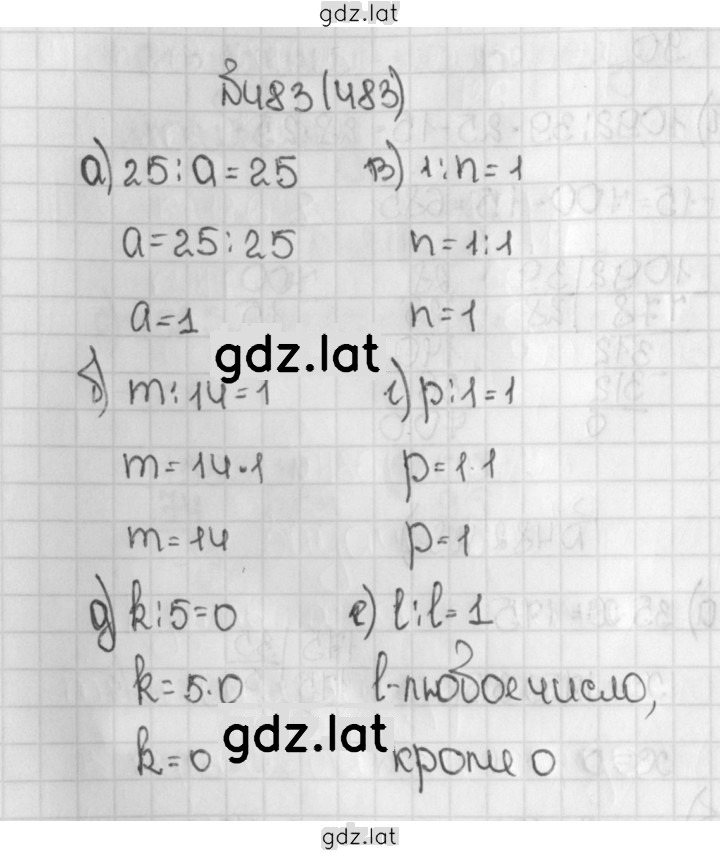 gdz.lat
№483 (483)
а) 25:a=25
a=25:25
a=1
б) m:14=1
m=14·1
m=14
в) 1:n=1
n=1:1
n=1
г) p:1=1
p=1·1
p=1
д) k:5=0
k=5·0
k=0
е) l:l=1
l-любое число,
кроме 0
gdz.lat
gdz.lat
gdz.lat